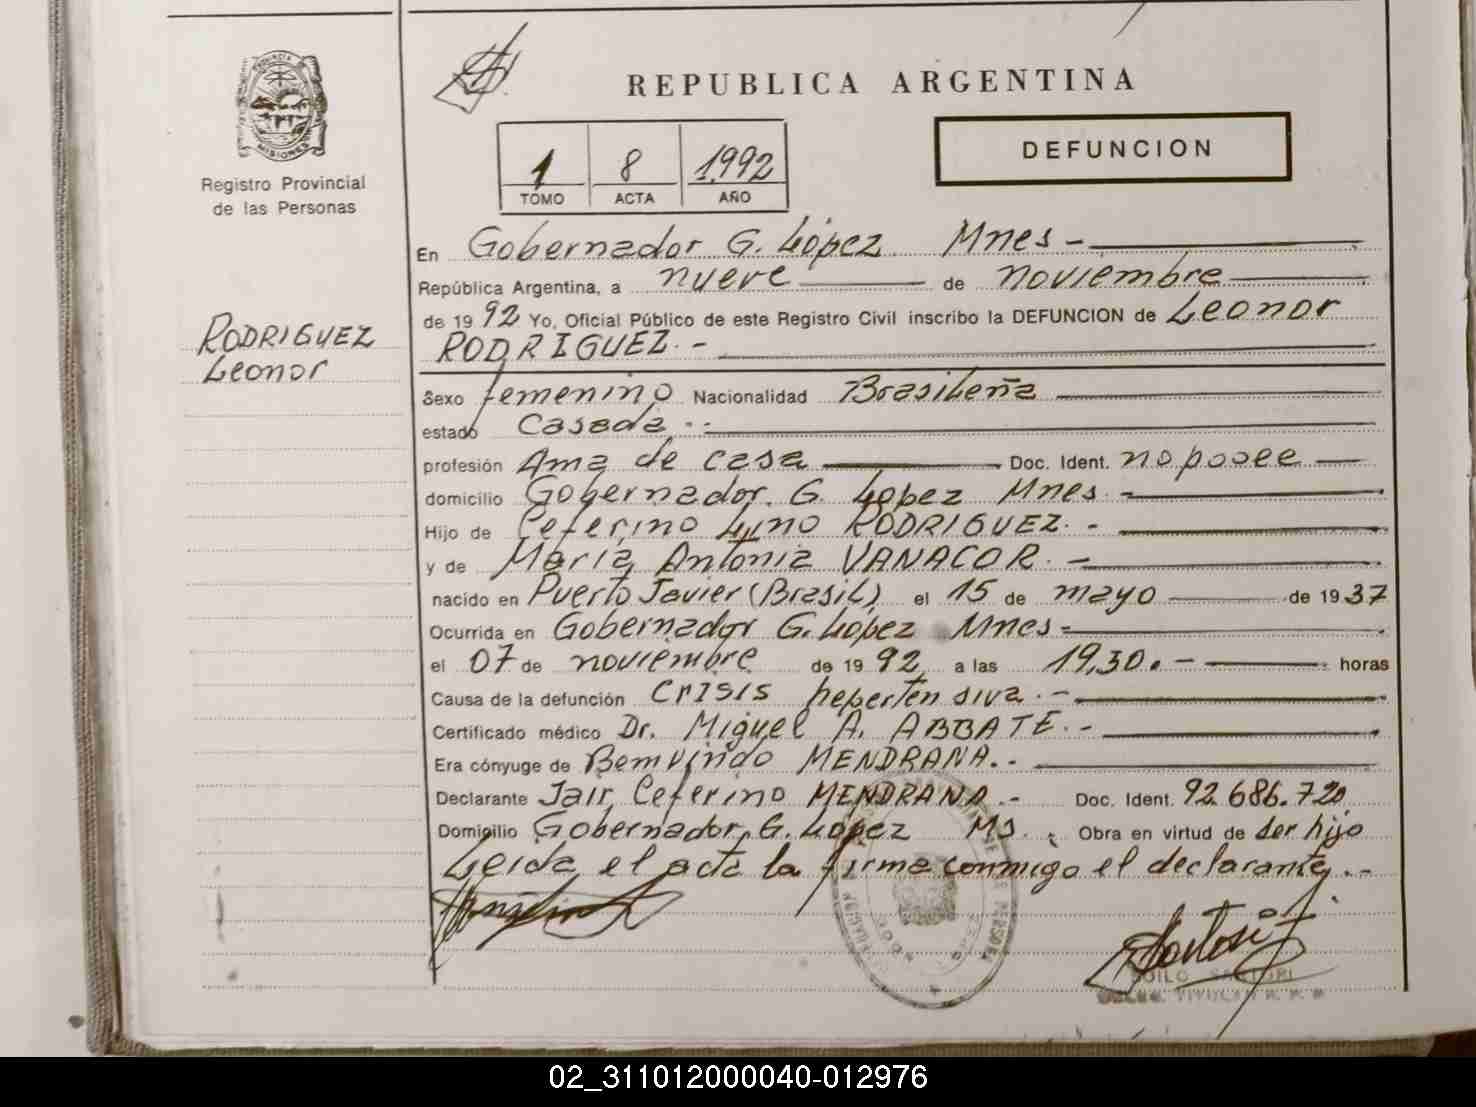 REPUBLICA ARGENTINA
PROVINCIA DE
MISIONES
Registro Provincial
de las Personas
1 8 1992
TOMO ACTA AÑO
DEFUNCION
RODRIGUEZ
Leonor
En Gobernador G. López Mnes -
República Argentina, a nueve de noviembre
de 1992 Yo, Oficial Público de este Registro Civil inscribo la DEFUNCION de Leonor
RODRIGUEZ. -
Sexo femenino Nacionalidad Brasileña
estado Casada. -
profesión Ama de casa Doc. Ident. no posee
domicilio Gobernador. G. López Mnes. -
Hijo de Ceferino Lino RODRIGUEZ. -
y de María Antonia VANACOR. -
nacido en Puerto Javier (Brasil) el 15 de mayo de 1937
Ocurrida en Gobernador G. López Mnes -
el 07 de noviembre de 1992 a las 19,30. - horas
Causa de la defunción crisis hepertensiva. -
Certificado médico Dr. Miguel A. ABBATE. -
Era cónyuge de Bemvindo MENDRANA. -
Declarante Jair Ceferino MENDRANA. - Doc. Ident. 92.686.720
Domicilio Gobernador G. López Ms. Obra en virtud de ser hijo
Leida el acta la firma conmigo el declarante. -
SARTORI
02_311012000040-012976